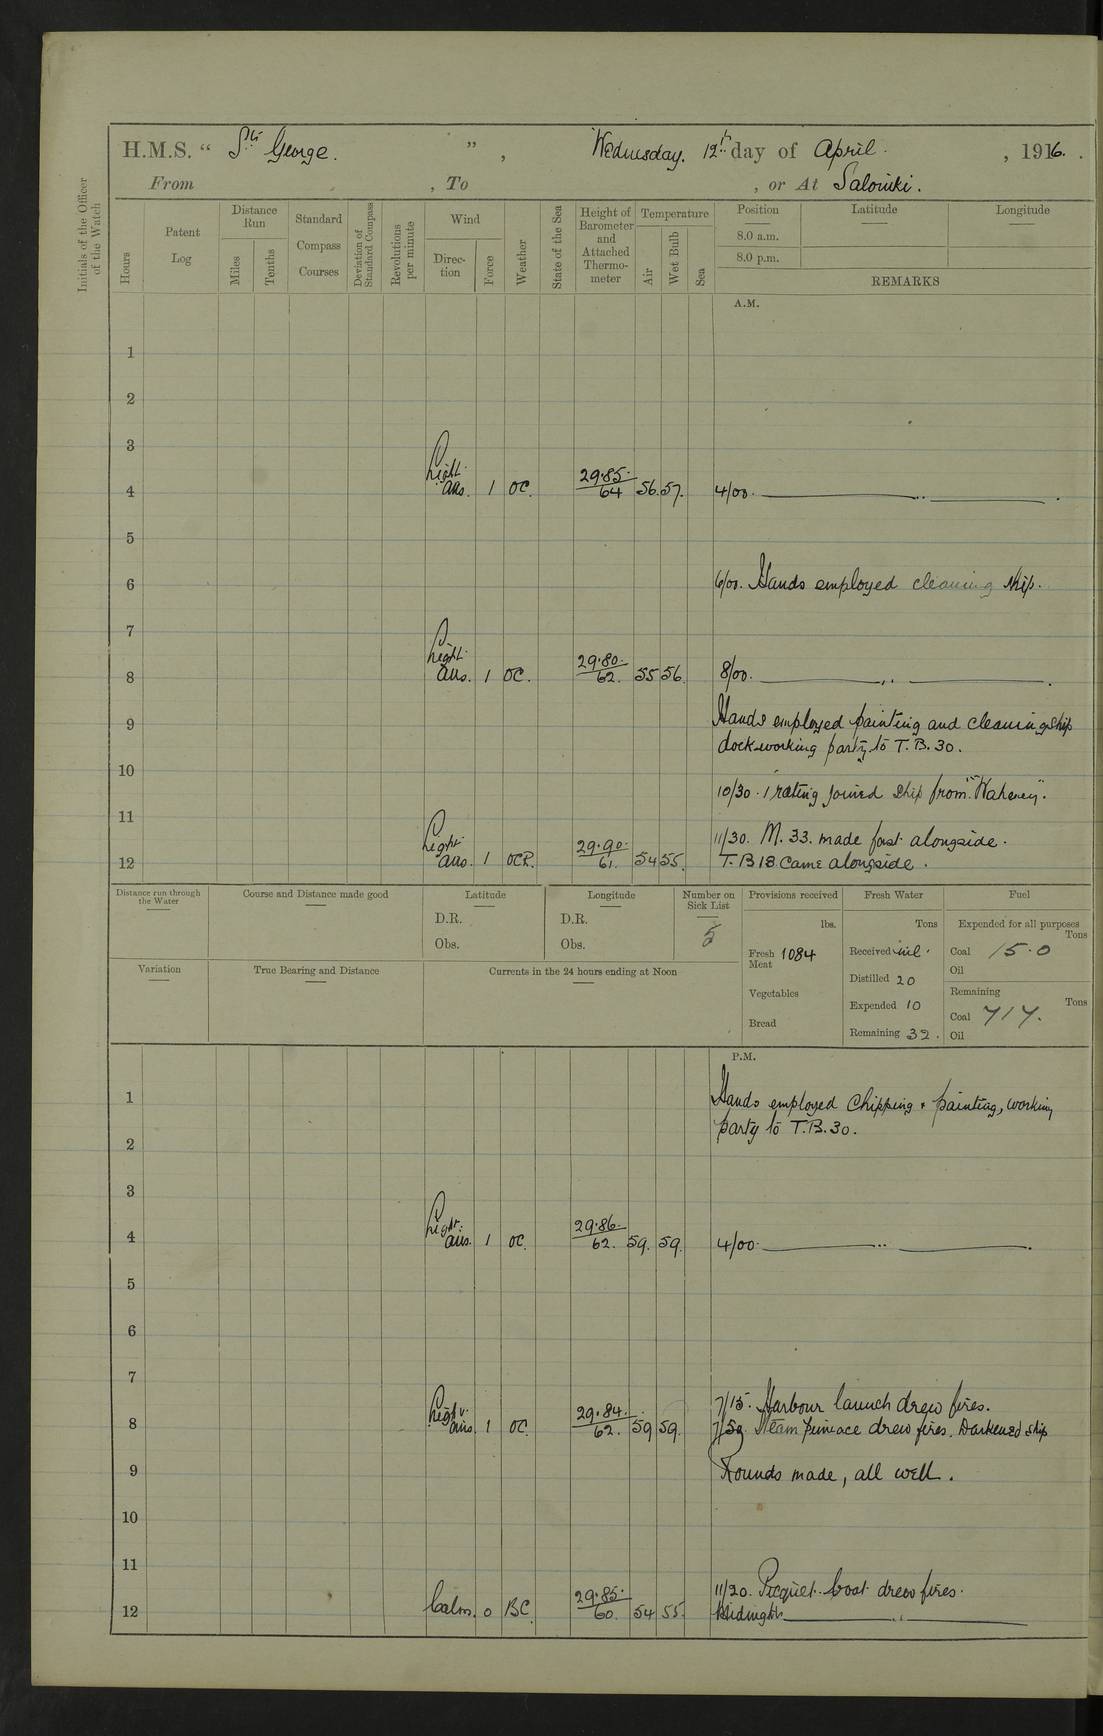 H.M.S. " St. George. ", Wednesday. 12th day of April. , 1916.
From , To , or At Salonika.
Initials of the Officer of the Watch
Hours
Patent Log
Distance Run
Miles
Tenths
Standard Compass Courses
Deviation of Standard Compass
Revolutions per minute
Wind
Direction
Force
Weather
State of the Sea
Height of Barometer and Attached Thermometer
Temperature
Air
Wet Bulb
Sea
Position Latitude Longitude
8.0 a.m.
8.0 p.m.
REMARKS
A.M.
1
2
3
4 Light airs. 1 OC. 29.85. 64 56. 57. 4/00. ——— " ———.
5
6 6/00. Hands employed cleaning ship.
7
8 Light airs. 1 OC. 29.80. 62. 55 56. 8/00. ——— " ———.
9 Hands employed painting and cleaning ship
dock working party to T.B. 30.
10 10/30. 1 rating joined ship from
11 11/30. M. 33. made fast alongside.
12 Light airs. 1 OCR. 29.90. 61. 54 55. T.B 18. came alongside.
Distance run through the Water
Course and Distance made good
Latitude
D.R.
Obs.
Longitude
D.R.
Obs.
Number on Sick List
5
Provisions received
lbs.
Fresh Meat 1084
Vegetables
Bread
Fresh Water
Tons
Received nil.
Distilled 20
Expended 10
Remaining 32.
Fuel
Expended for all purposes
Tons
Coal 15.0
Oil
Remaining
Tons
Coal 717.
Oil
Variation
True Bearing and Distance
Currents in the 24 hours ending at Noon
P.M.
1 Hands employed chipping & painting, working
party to T.B. 30.
2
3
4 Light airs. 1 OC. 29.86. 62. 59. 59. 4/00. ——— " ———.
5
6
7
7/15. Harbour launch drew fires.
8 Light airs. 1 OC. 29.84. 62. 59 59. 7/50. Steam pinnace drew fires. Darkened ship
9 Rounds made, all well.
10
11
11/20. Picquet boat drew fires.
12 Calm. 0 BC. 29.85. 60. 54 55. Midnight ——— " ———